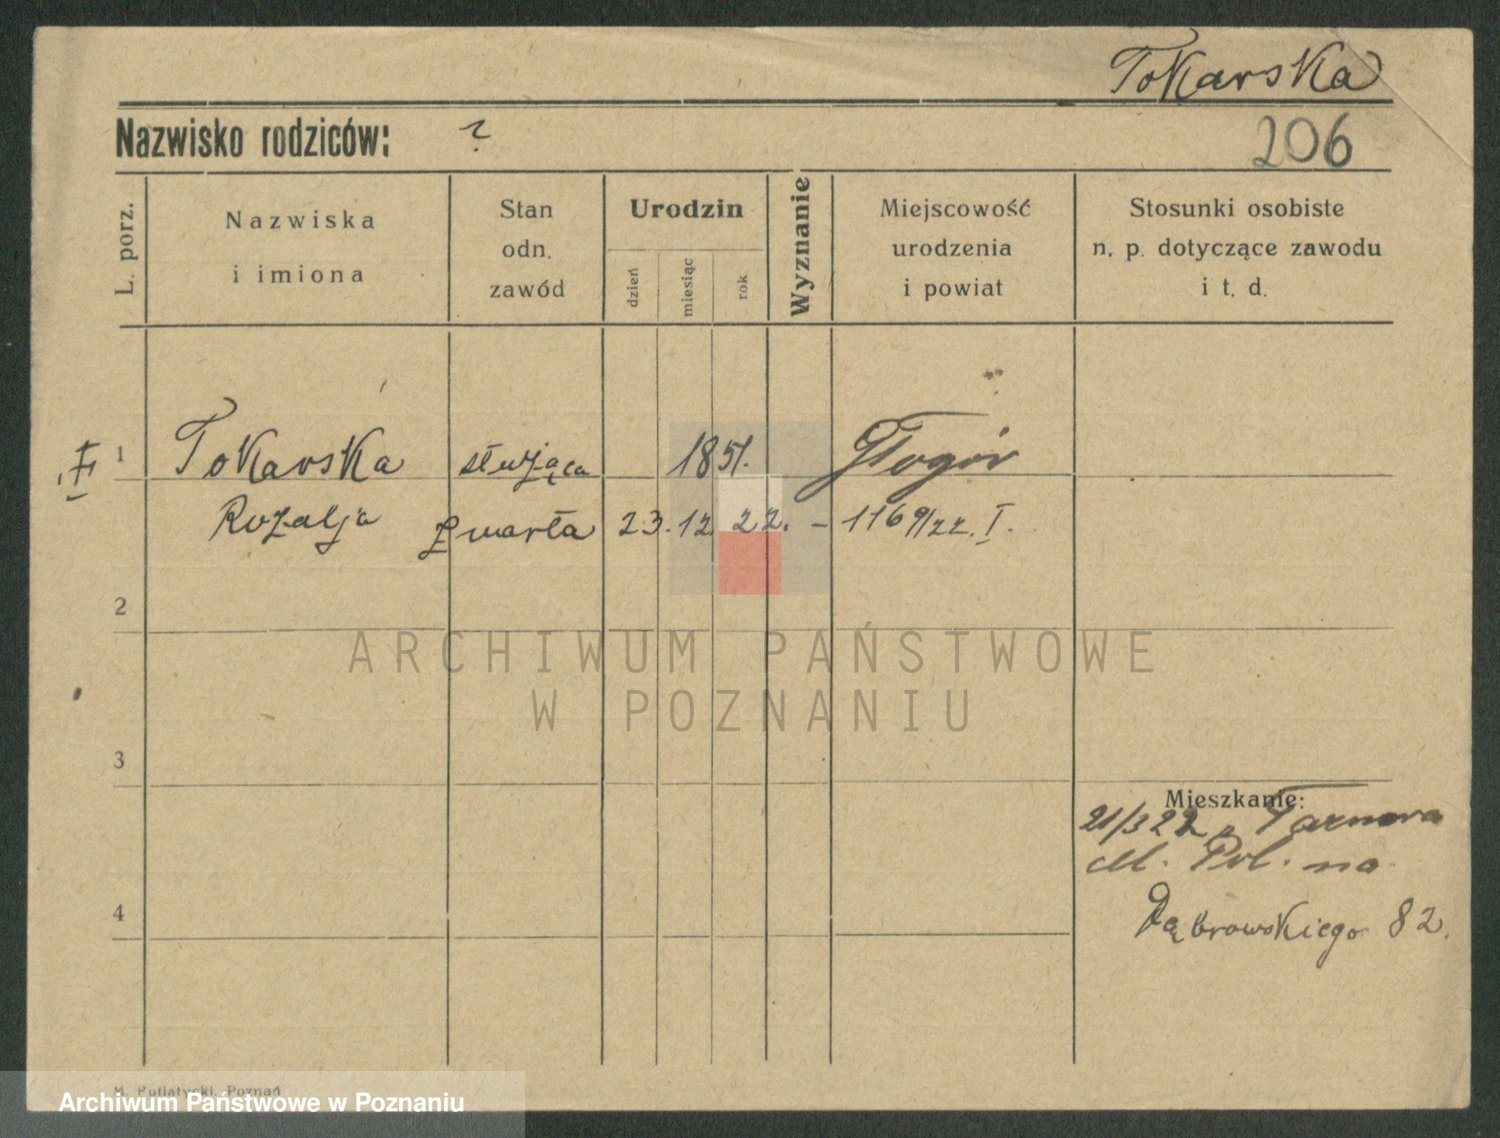 Tokarska
Nazwisko rodziców: ?
206
L. porz.
Nazwiska
i imiona
Stan
odn.
zawód
Urodzin
dzień
miesiąc
rok
Wyznanie
Miejscowość
urodzenia
i powiat
Stosunki osobiste
n. p. dotyczące zawodu
i t. d.
1 Tokarska służąca 1851. Głogór
Rozalja zmarła 23.12.22. - 1169/22. I.
2
3
4
Mieszkanie:
21/3 22 z Tarnowa
M. Pol. na
Dąbrowskiego 82.
M. Putiatycki, Poznań
ARCHIWUM PAŃSTWOWE
W POZNANIU
Archiwum Państwowe w Poznaniu